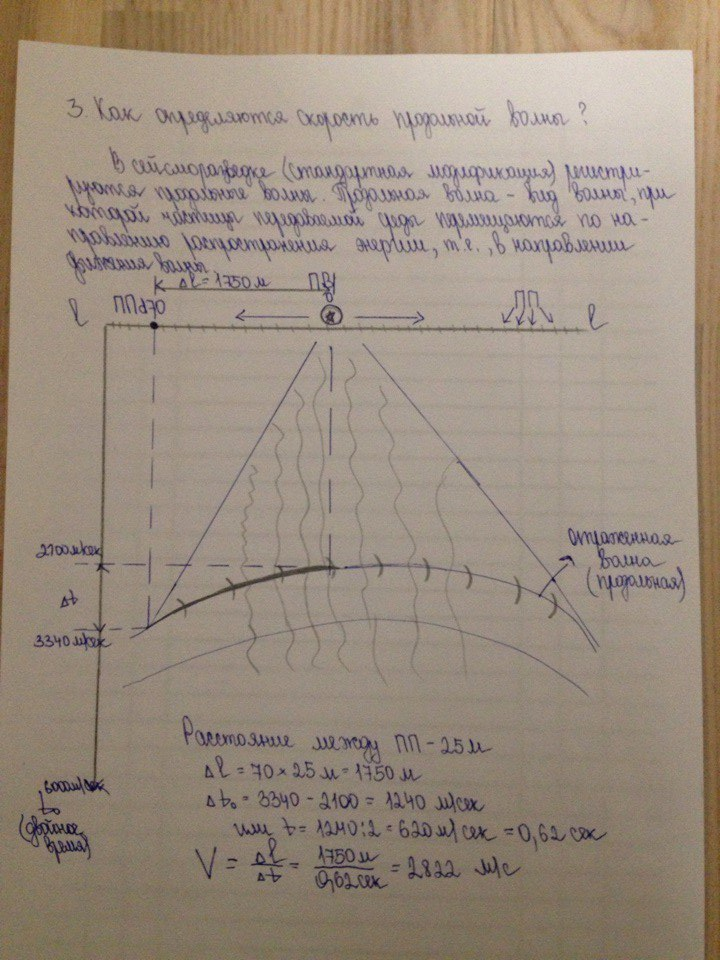 3. Как определяются скорость продольной волны?
В сейсморазведке (стандартная модификация) регистри-
руются продольные волны. Продольная волна – вид волны, при
которой частицы передаваемой среды перемещаются по на-
правлению распространения энергии, т.е., в направлении
движения волны.
Δl = 1750 м
ПВ
ПП
l
l
2100 м/сек
отраженная
волна
(продольная)
Δt
3340 м/сек
Расстояние между ПП – 25 м
Δl = 70 × 25 м = 1750 м
Δt₀ = 3340 – 2100 = 1240 м/сек
или t = 1240 : 2 = 620 м/сек = 0,62 сек
V = Δl/Δt = 1750 м/0,62 сек = 2822 м/с
6000 м/сек
t₀
(двойное
время)